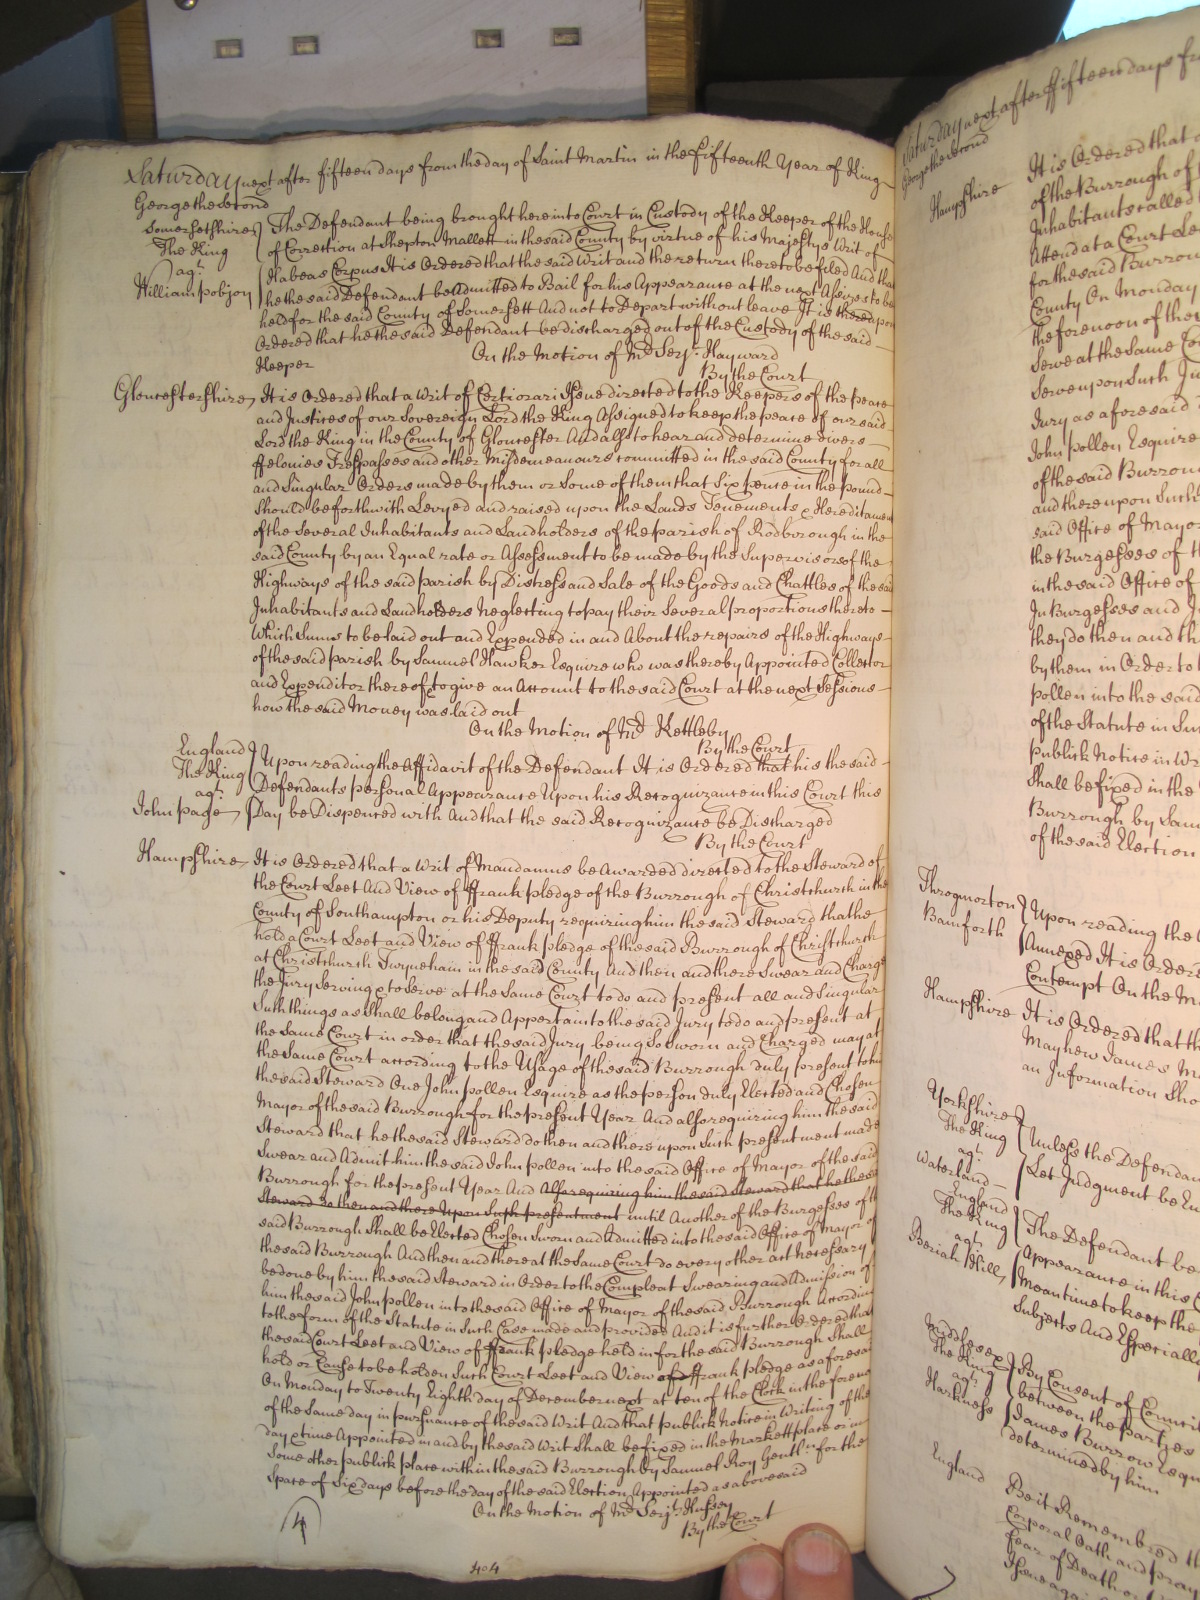 Saturday next after fifteen days from the day of Saint Martin in the Fifteenth Year of King
George the Second
Somersetshire
The King
agt
William pobjoy
The Defendant being brought here into Court in Custody of the Keeper of the House
of Correction at Shepton Mallett in the said County by virtue of his Majestys Writ of
Habeas Corpus It is Ordered that the said Writ and the return thereto be filed And that
he the said Defendant be Admitted to Bail for his Appearance at the next Assizes to be
held for the said County of Somersett And not to Depart without leave It is thereupon
Ordered that he the said Defendant be discharged out of the Custody of the said
Keeper
On the Motion of Mr Serjt Hayward
By the Court
Gloucestershire
It is Ordered that a Writ of Certiorari Issue directed to the Keepers of the peace
and Justices of our Sovereign Lord the King Assigned to keep the peace of our said
Lord the King in the County of Gloucester And also to hear and determine divers
ffelonies Trespasses and other Misdemeanours committed in the said County for all
and Singular Orders made by them or Some of them that Six pence in the pound
Should be forthwith Levyed and raised upon the Lands Tenements & Hereditaments
of the Several Inhabitants and Landholders of the parish of Rodborough in the
said County by an Equal rate or Assessment to be made by the Supervisors of the
Highways of the said parish by Distress and Sale of the Goods and Chattles of the said
Inhabitants and Landholders Neglecting to pay their Several proportions thereto
Which Sums to be laid out and Expended in and About the repairs of the Highways
of the said parish by Samuel Hawker Esquire who was thereby Appointed Collector
and Expenditor thereof to give an Account to the said Court at the next Sessions
how the said Money was laid out
On the Motion of Mr Kettleby
By the Court
England
The King
agt
John page
Upon reading the Affidavit of the Defendant It is Ordered that his the said
Defendants personal Appearance Upon his Recognizance in this Court this
Day be Dispenced with And that the said Recognizance be Discharged
By the Court
Hampshire
It is Ordered that a Writ of Mandamus be Awarded directed to the Steward of
the Court Leet And View of ffrank pledge of the Burrough of Christchurch in the
County of Southampton or his Deputy requiring him the said Steward that he
hold a Court Leet and View of ffrank pledge of the said Burrough of Christchurch
at Christchurch Twyneham in the said County And then and there Swear and Charge
the Jury Serving & to Serve at the Same Court to do and present all and Singular
Such things as Shall belong and Appertain to the said Jury to do and present at
the Same Court in order that the said Jury being So Sworn and Charged may at
the Same Court according to the Usage of the said Burrough duly present to him
the said Steward One John pollen Esquire as the person duly Elected and Chosen
Mayor of the said Burrough for the present Year And also requiring him the said
Steward that he the said Steward do then and there upon Such presentment made
Swear and Admit him the said John pollen into the said Office of Mayor of the said
Burrough for the present Year And Also requiring him the said Steward that he the said
Steward do then and there Upon Such presentment until Another of the Burgesses of the
said Burrough Shall be Elected Chosen Sworn and Admitted into the said Office of Mayor of
the said Burrough And then and there at the Same Court do every other act necessary
be done by him the said Steward in Order to the Compleat Swearing and Admission of
him the said John pollen into the said Office of Mayor of the said Burrough According
to the form of the Statute in Such Case made and provided And it is further Ordered that
the said Court Leet and View of ffrank pledge held in for the said Burrough Shall
hold or Cause to be holden Such Court Leet and View of ffrank pledge as aforesaid
On Monday to Twenty Eighth day of December next at ten of the Clock in the forenoon
of the Same day in pursuance of the said Writ And that publick Notice in Writing of the
day & time Appointed in and by the said Writ Shall be fixed in the Markett place or in
Some other publick place within the said Burrough by Samuel Roy Gentl for the
Space of Six days before the day of the said Election Appointed as abovesaid
On the Motion of Mr Serjt Hussey
By the Court
404
Saturday next after ffifteen days from
George the Second
Hampshire
It is Ordered that
of the Burrough of
Inhabitants called
Attend at a Court Leet
for the said Burrough
County On Monday
the forenoon of the
Serve at the Same Court
Serve upon Such Jury
Jury as aforesaid
John pollen Esquire
of the said Burrough
and thereupon Such
said Office of Mayor
the Burgesses of the
in the said Office of
In Burgesses and
they do then and there
by them in Order to
pollen into the said
of the Statute in Such
publick Notice in Writing
Shall be fixed in the
Burrough by Samuel
of the said Election
Throgmorton
Bamforth
Upon reading the
Annexed It is Ordered
Contempt On the
Hampshire
It is Ordered that the
Mayhew James
an Information
Yorkshire
The King
agt
Waterland
Unless the Defendant
Let Judgment be
England
The King
agt
Beriah Hill
The Defendant
Appearance in this
Meantime to keep the
Subjects And Especially
Middlesex
The King
agt
Harkness
By Consent of Council
between the partys
James Burrow Esqu
determined by him
England
Be it Remembred
Corporal Oath and pray
fear of Death or